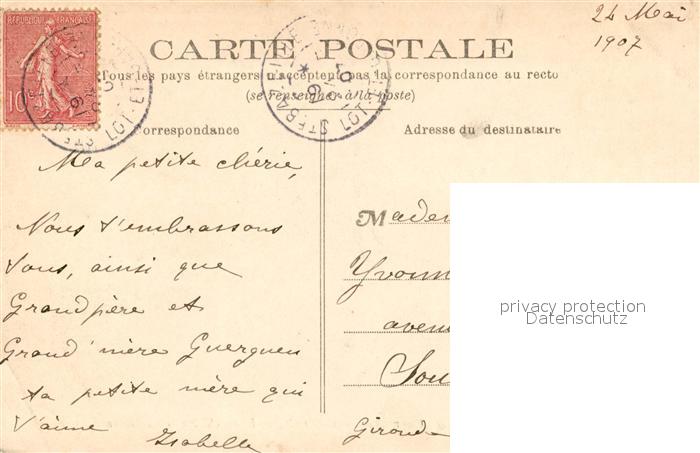 24 Mai
1907
RÉPUBLIQUE FRANÇAISE
10
CARTE POSTALE
Tous les pays étrangers n'acceptent pas la correspondance au recto
(se renseigner à la poste)
Correspondance
Adresse du destinataire
Ma petite chérie,
Nous t'embrassons
tous, ainsi que
Grandpère et
Grand'mère Guerguen
ta petite mère qui
t'aime
Isabelle
Madem
Yvonn
aven
Sou
Gironde
privacy protection
Datenschutz